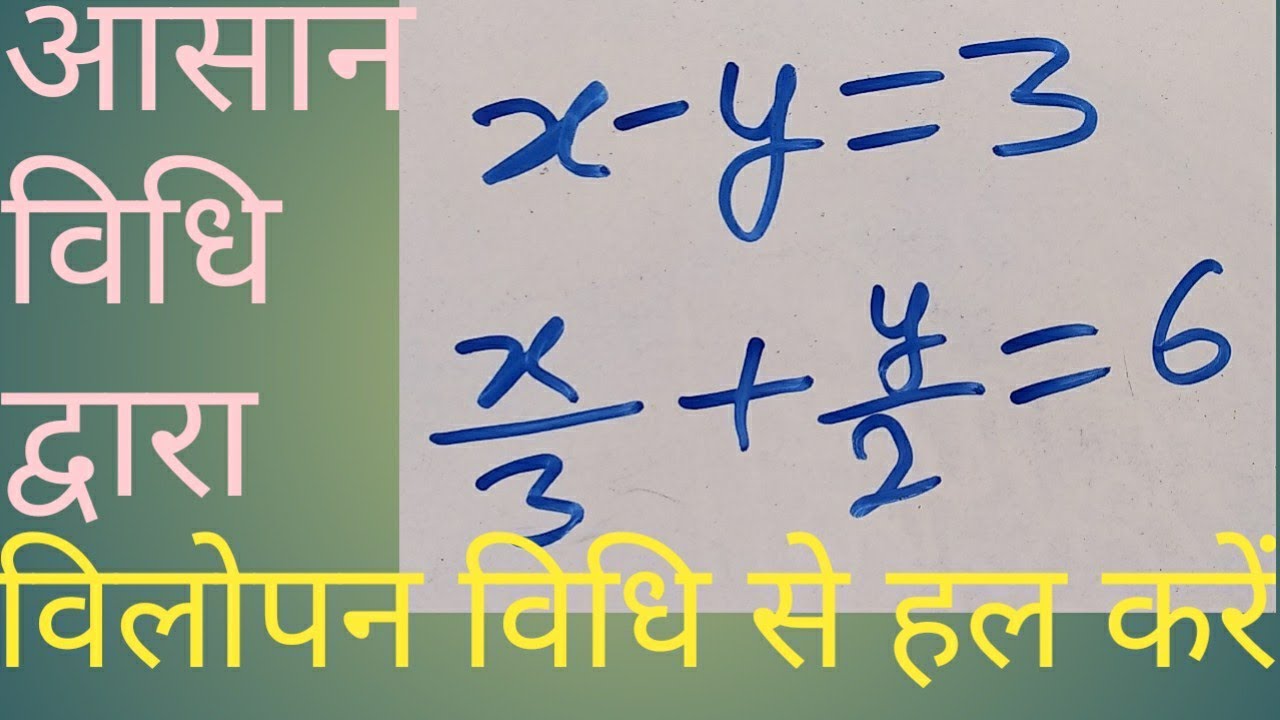 आसान
विधि
द्वारा
x-y=3
x/3+y/2=6
विलोपन विधि से हल करें